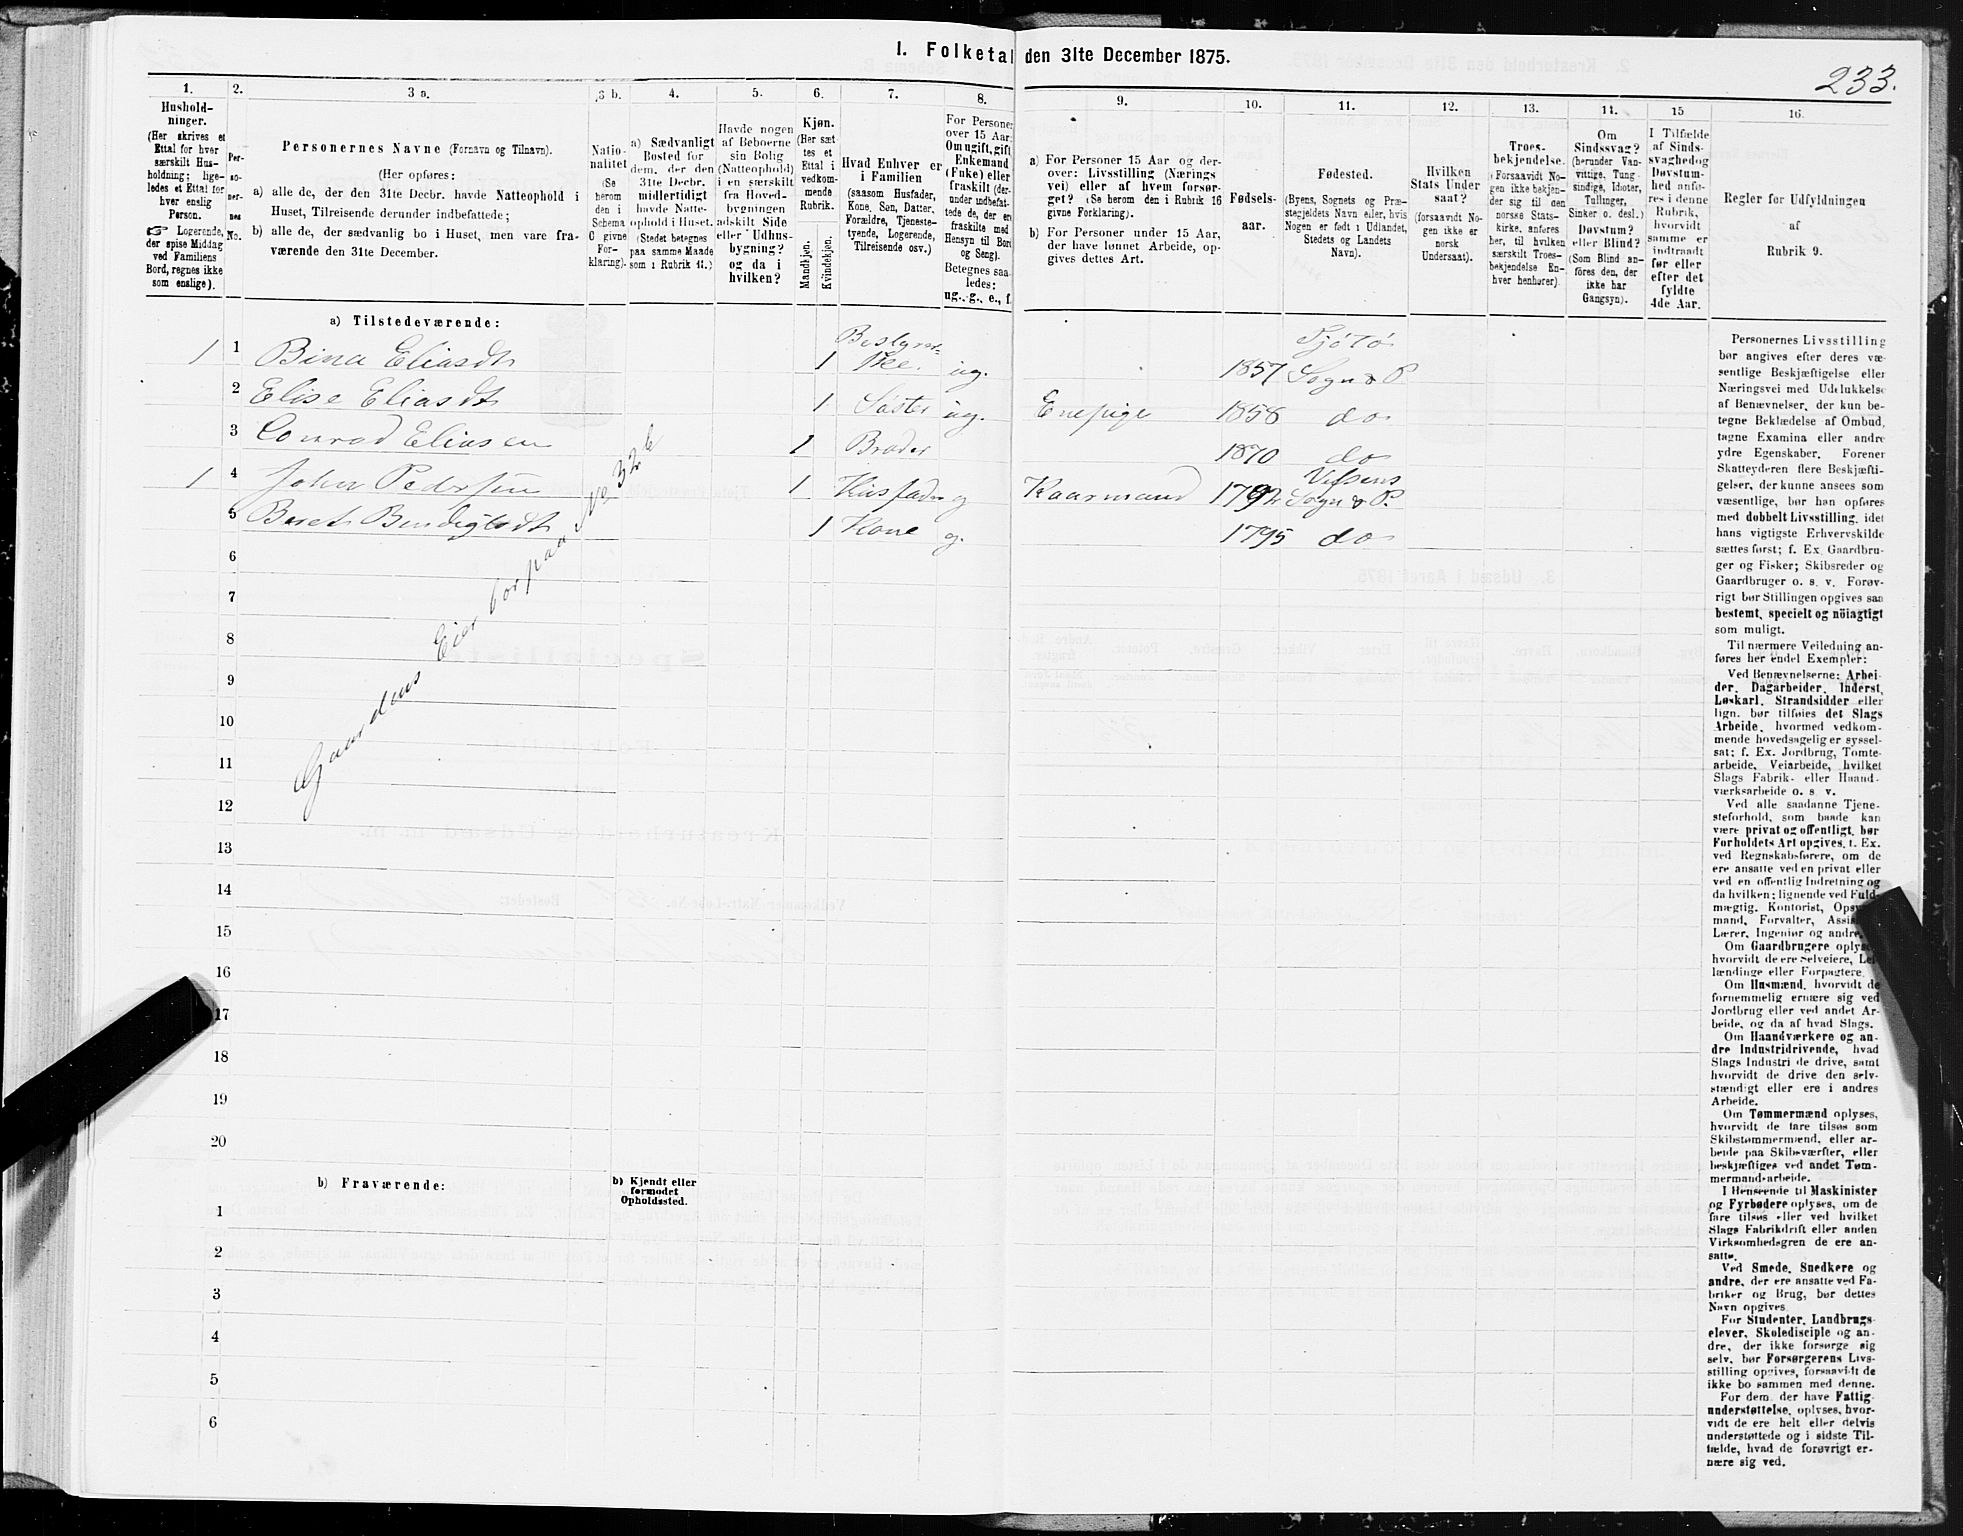 I. Folketal den 31te December 1875.
233.
1.
Hushold-
ninger.
(Her skrives et
Ettal for hver
særskilt Hus-
holdning; lige-
ledes et Ettal for
hver enslig
Person.
☞ Logerende,
der spise Middag
ved Familiens
Bord, regnes ikke
som enslige).
2.
Per-
so-
ner-
nes
No.
3 a.
Personernes Navne (Fornavn og Tilnavn).
(Her opføres:
a) alle de, der den 31te Decbr. havde Natteophold i
Huset, Tilreisende derunder indbefattede;
b) alle de, der sædvanlig bo i Huset, men vare fra-
værende den 31te December.
3 b.
Natio-
nalitet
(Se
herom
den i
Schema
6 givne
For-
klaring).
4.
a) Sædvanligt
Bosted for
dem, der den
31te Decbr.
midlertidigt
havde Natte-
ophold i Huset.
(Stedet betegnes
paa samme Maade
som i Rubrik 11.)
5.
Havde nogen
af Beboerne
sin Bolig
(Natteophold)
i en særskilt
fra Hoved-
bygningen
adskilt Side
eller Udhus-
bygning?
og da i
hvilken?
6.
Kjøn.
(Her sæt-
tes et
Ettal i
vedkom-
mende
Rubrik.
Mandkjøn.
Kvindekjøn.
7.
Hvad Enhver er
i Familien
(saasom Husfader,
Kone, Søn, Datter,
Forældre, Tjeneste-
tyende, Logerende,
Tilreisende osv.)
8.
For Personer
over 15 Aar:
Om ugift, gift,
Enkemand
(Enke) eller
fraskilt (der-
under indbefat-
tede de, der er
fraskilte med
Hensyn til Bord
og Seng).
Betegnes saa-
ledes:
ug., g., e., f.
9.
a) For Personer 15 Aar og der-
over: Livsstilling (Nærings-
vei) eller af hvem forsør-
get? (Se herom den i Rubrik 16
givne Forklaring).
b) For Personer under 15 Aar,
der have lønnet Arbeide, op-
gives dettes Art.
10.
Fødsels-
aar.
11.
Fødested.
(Byens, Sognets og Præ-
stegjeldets Navn eller, hvis
Nogen er født i Udlandet,
Stedets og Landets
Navn).
12.
Hvilken
Stats Under-
saat?
(forsaavidt No-
gen ikke er
norsk
Undersaat).
13.
Troes-
bekjendelse.
(Forsaavidt No-
gen ikke bekjen-
der sig til den
norske Stats-
kirke, anføres
her, til hvilken
særskilt Troes-
bekjendelse En-
hver henhører)
14.
Om
Sindssvag?
(herunder Van-
vittige, Tung-
sindige, Idioter,
Tullinger,
Sinker o. desl.)
Døvstum?
eller Blind?
(Som Blind an-
føres den, der
ikke har
Gangsyn).
15
I Tilfælde
af Sinds-
svaghed og
Døvstum-
hed anfø-
res i denne
Rubrik,
hvorvidt
samme er
indtraadt
før eller
efter det
fyldte
4de Aar.
16.
Regler for Udfyldningen
af
Rubrik 9.
a) Tilstedeværende:
1 1 Bina Eliasdt 1 Bestyrer-ske. ug. 1857 Tjötö Sogn & P.
2 Elise Eliasdt 1 Søster ug. Enepige 1858 do
3 Conrad Eliasen 1 Broder 1870 do
1 4 John Pedersen 1 Husfader g Kaarmand 1792 Vefsens Sogn & P.
5 Beret Bendigtsdt 1 Kone g. 1795 do
Gaardens Eier bor paa No 32b
6
7
8
9
10
11
12
13
14
15
16
17
18
19
20
b) Fraværende:
b) Kjendt eller
formodet
Opholdssted.
1
2
3
4
5
6
Personernes Livsstilling
bør angives efter deres væ-
sentlige Beskjæftigelse eller
Næringsvei med Udelukkelse
af Benævnelser, der kun be-
tegne Beklædelse af Ombud,
tagne Examina eller andre
ydre Egenskaber. Forener
Skatteyderen flere Beskjæfti-
gelser, der kunne ansees som
væsentlige, bør han opføres
med dobbelt Livsstilling, idet
hans vigtigste Erhvervskilde
sættes først; f. Ex. Gaardbru-
ger og Fisker; Skibsreder og
Gaardbruger o. s. v. Forøv-
rigt bør Stillingen opgives saa
bestemt, specielt og nöiagtigt
som muligt.
Til nærmere Veiledning an-
føres her endel Exempler:
Ved Benævnelserne: Arbei-
der, Dagarbeider, Inderst,
Løskarl, Strandsidder eller
lign. bør tilføies det Slags
Arbeide, hvormed vedkom-
mende hovedsagelig er syssel-
sat; f. Ex. Jordbrug, Tomte-
arbeide, Veiarbeide, hvilket
Slags Fabrik- eller Haand-
værksarbeide o. s. v.
Ved alle saadanne Tjene-
steforhold, som baade kan
være privat og offentligt, bør
Forholdets Art opgives, f. Ex.
ved Regnskabsførere, om de
ere ansatte ved en privat eller
ved en offentlig Indretning og
da hvilken; lignende ved Fuld-
mægtig, Kontorist,
mand, Forvalter,
Lærer, Ingeniør og andre.
Om Gaardbrugere
hvorvidt de ere Selveiere,
lændinge eller Forpagtere.
Om Husmænd, hvorvidt de
fornemmelig ernære sig ved
Jordbrug eller ved andet Ar-
beide, og da af hvad Slags.
Om Haandværkere og an-
dre Industridrivende, hvad
Slags Industri de drive, samt
hvorvidt de drive den selv-
stændigt eller ere i andres
Arbeide.
Om Tømmermænd oplyses,
hvorvidt de fare tilsøs som
Skibstømmermænd, eller ar-
beide paa Skibsværfter, eller
beskjæftiges ved andet Tøm-
mermandsarbeide.
I Henseende til Maskinister
og Fyrbødere oplyses, om de
fare tilsøs eller ved hvilket
Slags Fabrikdrift eller anden
Virksomhedsgren de ere an-
satte.
Ved Smede, Snedkere og
andre, der ere ansatte ved Fa-
briker og Brug, bør dettes
Navn opgives.
For Studenter, Landbrugs-
elever, Skoledisciple og an-
dre, der ikke forsørge sig
selv, bør Forsørgerens Livs-
stilling opgives, forsaavidt de
ikke bo sammen med denne.
For dem, der have Fattig-
understøttelse, oplyses, hvor-
vidt de ere helt eller delvis
understøttede og i sidste Til-
fælde, hvad de forøvrigt er-
nære sig ved.